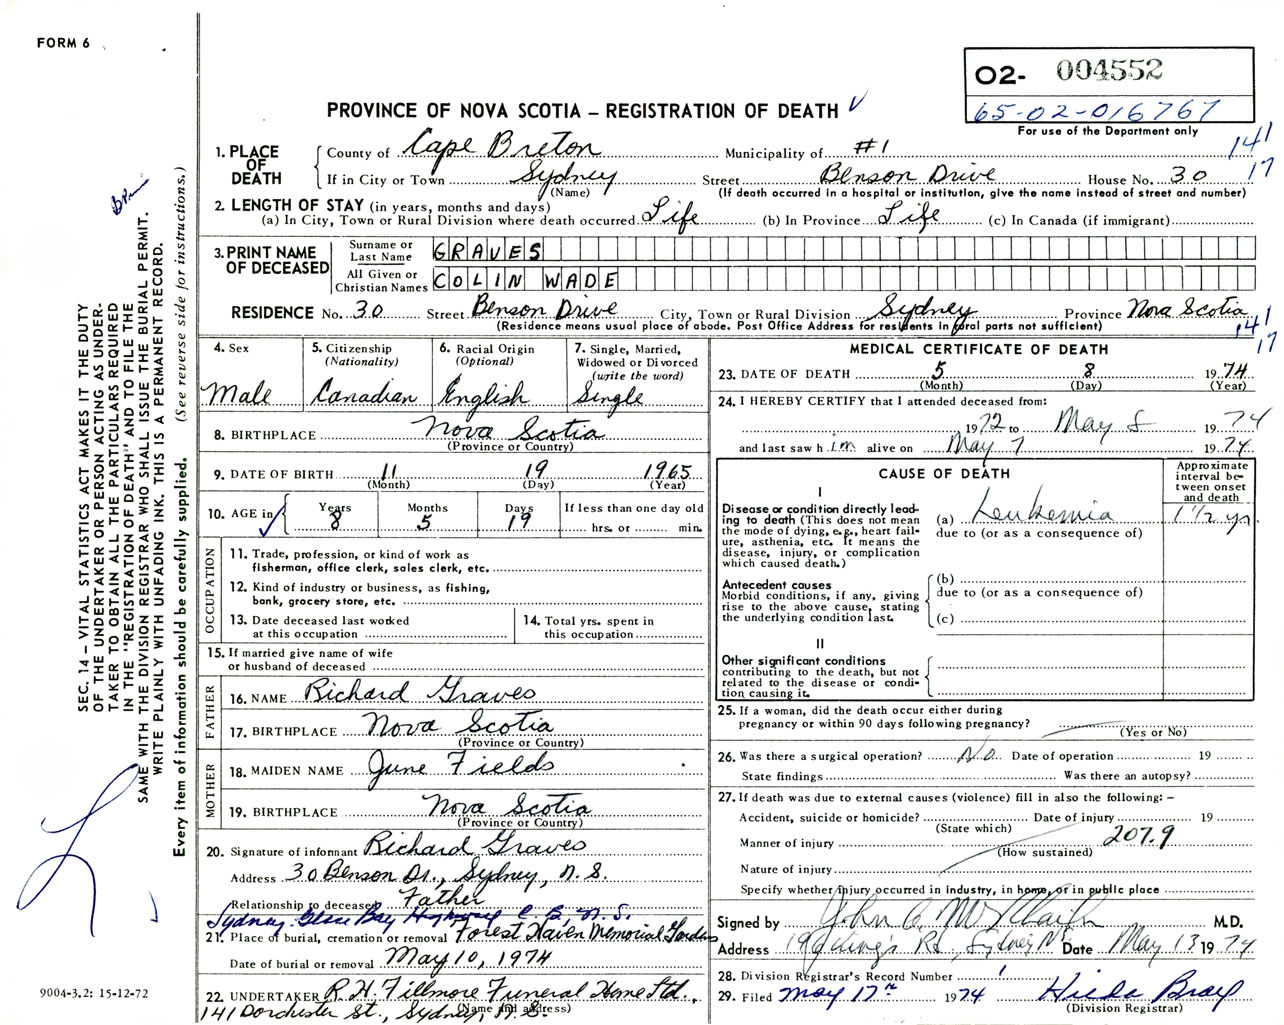 FORM 6
02- 004552
65-02-016767
For use of the Department only
PROVINCE OF NOVA SCOTIA – REGISTRATION OF DEATH
1. PLACE OF DEATH
County of Cape Breton Municipality of #1
141
If in City or Town Sydney Street Benson Drive House No. 30
17
(Name) (If death occurred in a hospital or institution, give the name instead of street and number)
2. LENGTH OF STAY (in years, months and days)
(a) In City, Town or Rural Division where death occurred Life (b) In Province Life (c) In Canada (if immigrant)
3. PRINT NAME OF DECEASED
Surname or Last Name GRAVES
All Given or Christian Names COLIN WADE
RESIDENCE No. 30 Street Benson Drive City, Town or Rural Division Sydney Province Nova Scotia
(Residence means usual place of abode. Post Office Address for residents in rural parts not sufficient)
141
17
4. Sex
Male
5. Citizenship
(Nationality)
Canadian
6. Racial Origin
(Optional)
English
7. Single, Married,
Widowed or Divorced
(write the word)
Single
8. BIRTHPLACE Nova Scotia
(Province or Country)
9. DATE OF BIRTH 11 19 1965
(Month) (Day) (Year)
10. AGE in
Years Months Days If less than one day old
8 5 19 hrs. or min.
OCCUPATION
11. Trade, profession, or kind of work as
fisherman, office clerk, sales clerk, etc.
12. Kind of industry or business, as fishing,
bank, grocery store, etc.
13. Date deceased last worked
at this occupation
14. Total yrs. spent in
this occupation
15. If married give name of wife
or husband of deceased
FATHER
16. NAME Richard Graves
17. BIRTHPLACE Nova Scotia
(Province or Country)
MOTHER
18. MAIDEN NAME June Fields
19. BIRTHPLACE Nova Scotia
(Province or Country)
20. Signature of informant Richard Graves
Address 30 Benson Dr., Sydney, N.S.
Relationship to deceased Father
Sydney Glace Bay Highway C.B., N.S.
21. Place of burial, cremation or removal Forest Haven Memorial Gardens
Date of burial or removal May 10, 1974
22. UNDERTAKER R.H. Fillmore Funeral Home Ltd.,
141 Dorchester St., Sydney, N.S.
(Name and address)
MEDICAL CERTIFICATE OF DEATH
23. DATE OF DEATH 5 8 1974
(Month) (Day) (Year)
24. I HEREBY CERTIFY that I attended deceased from:
1972 to May 8 1974
and last saw him alive on May 7 1974
CAUSE OF DEATH
Approximate
interval be-
tween onset
and death
I
Disease or condition directly lead-
ing to death (This does not mean
the mode of dying, e.g., heart fail-
ure, asthenia, etc. It means the
disease, injury, or complication
which caused death.)
(a) Leukemia 1 1/2 yr.
due to (or as a consequence of)
Antecedent causes
Morbid conditions, if any, giving
rise to the above cause, stating
the underlying condition last.
(b)
due to (or as a consequence of)
(c)
II
Other significant conditions
contributing to the death, but not
related to the disease or condi-
tion causing it.
25. If a woman, did the death occur either during
pregnancy or within 90 days following pregnancy?
(Yes or No)
26. Was there a surgical operation? No. Date of operation 19
State findings Was there an autopsy?
27. If death was due to external causes (violence) fill in also the following: –
Accident, suicide or homicide? Date of injury 19
(State which)
207.9
Manner of injury
(How sustained)
Nature of injury
Specify whether injury occurred in industry, in home, or in public place
Signed by John M.D.
Address Rd., Sydney NS Date May 13 1974
28. Division Registrar's Record Number 1
29. Filed May 17th 1974 Hilda Bray
(Division Registrar)
SEC. 14 – VITAL STATISTICS ACT MAKES IT THE DUTY
OF THE UNDERTAKER OR PERSON ACTING AS UNDER-
TAKER TO OBTAIN ALL THE PARTICULARS REQUIRED
IN THE "REGISTRATION OF DEATH" AND TO FILE THE
SAME WITH THE DIVISION REGISTRAR WHO SHALL ISSUE THE BURIAL PERMIT.
WRITE PLAINLY WITH UNFADING INK. THIS IS A PERMANENT RECORD.
Every item of information should be carefully supplied. (See reverse side for instructions.)
9004-3.2: 15-12-72